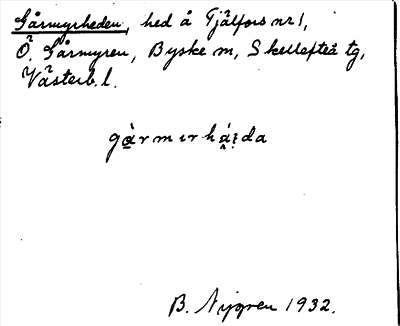 Gårmyrheden, hed å Fjälfors nr 1,
Ö. Gårmyren, Byske sn, Skellefteå tg,
Västerb. l.
gàrmırhá̭ɪda
B. Nygren 1932.